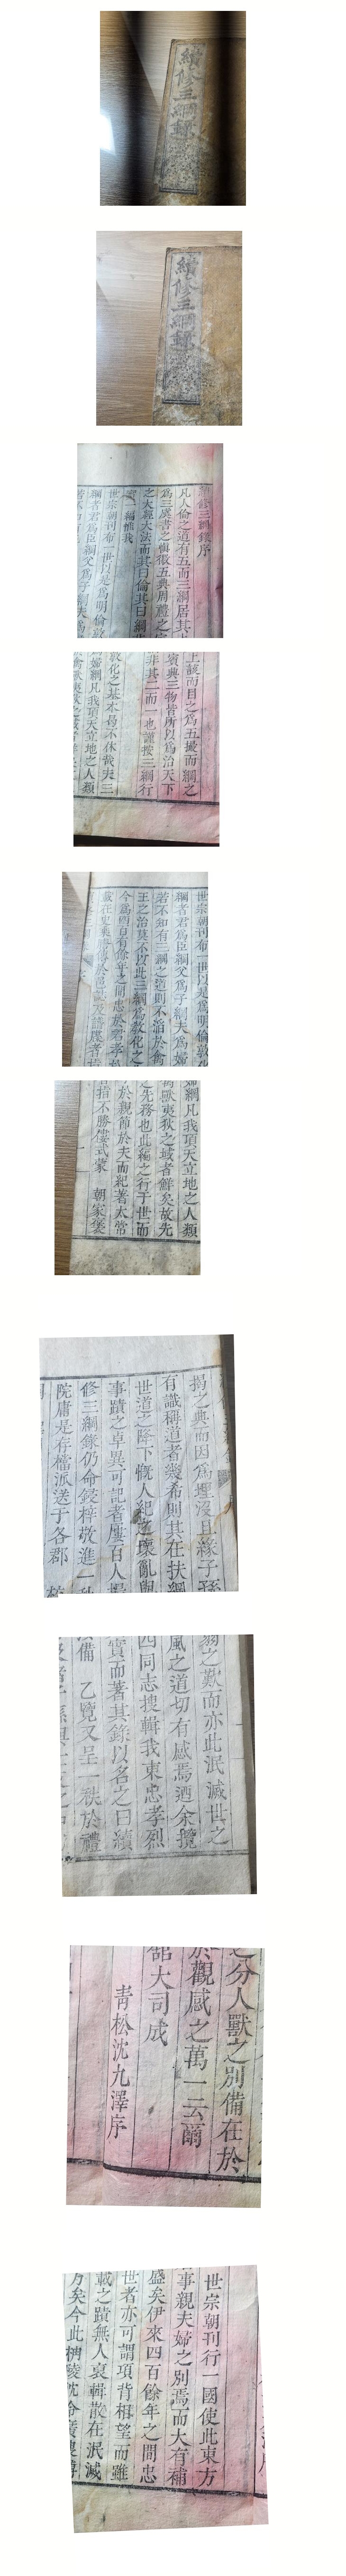 續修三綱錄
續修三綱錄
續修三綱錄序
凡人倫之道有五而三綱居其
爲三虞書之徽五典周禮之
之大經大法而其曰倫其曰綱
一編惟我
世宗朝刊布一世以是爲明倫敦
綱者君爲臣綱父爲子綱夫爲
上該而目之爲五撮而綱之
賓興三物皆所以爲治天下
非其二而一也謹按三綱行
敎化之基本曷不休哉夫三
婦綱凡我頂天立地之人類
世宗朝刊布一世以是爲明倫敦化
綱者君爲臣綱父爲子綱夫爲婦
若不知有三綱之道則不滔於禽
王之治莫不以此三綱爲敎化之
今爲四百有餘年之間忠於君孝
婦綱凡我頂天立地之人類
獸夷狄之域者鮮矣故先
之先務也此編之行于世而
於親節於夫而紀著太常
指不勝僂式蒙 朝家褒
揚之典而因爲堙沒且緣子孫
有識稱道者幾希則其在扶綱
世道之降下慨人紀之壞亂與
事蹟之卓異可記者屢百人
修三綱錄仍命鋟梓敬進一
院庸是存檔派送于各郡
翁之歎而亦此泯滅世之
風之道切有感焉迺余攬
四同志搜輯我東忠孝烈
實而著其錄以名之曰續
備 乙覽又呈一秩於禮
之分人獸之別備在於
於觀感之萬一云爾
舘大司成
靑松沈九澤序
世宗朝刊行一國使此東方
事親夫婦之別焉而大有補
盛矣伊來四百餘年之間忠
世者亦可謂項背相望而雖
載之蹟無人裒輯散在泯滅
方矣今此